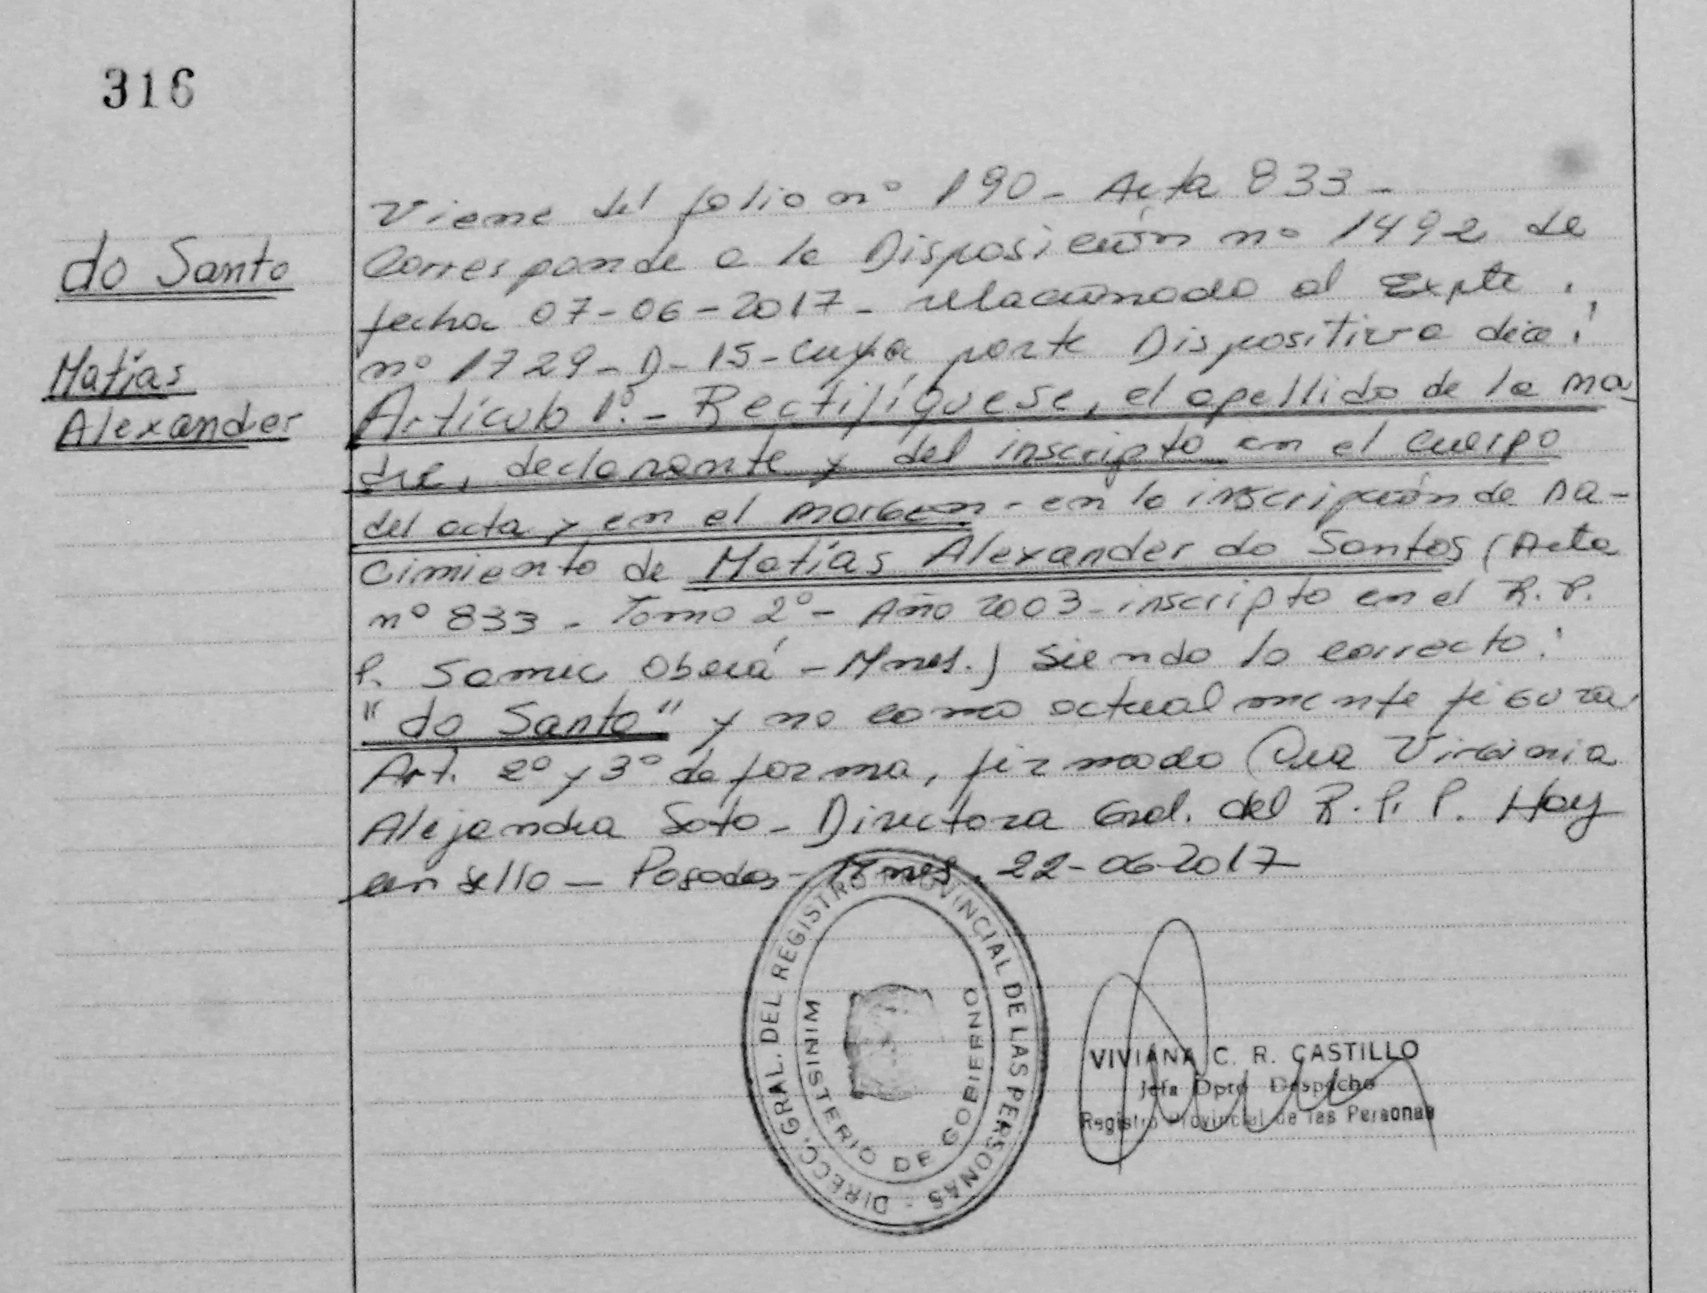 316
do Santo
Matías
Alexander
Viene del folio nº 190 - Acta 833 -
Corresponde a la Disposición nº 1492 de
fecha 07-06-2017 - relacionado al Expte.
nº 1729 - D - 15 - cuya parte Dispositiva dice:
Artículo 1º. - Rectifíquese, el apellido de la ma-
dre, declarante y del inscripto en el cuerpo
del acta y en el margen - en la inscripción de na-
cimiento de Matías Alexander do Santos (Acta
nº 833 - Tomo 2º - Año 2003 - inscripto en el R. P.
P. Samic Oberá - Mnes.) siendo lo correcto:
"do Santo" y no como actualmente figura
Art. 2º y 3º de forma, firmado Dra Virginia
Alejandra Soto - Directora Gral. del R. P. P. Hay
un sello - Posadas - Mnes. 22-06-2017
DIRECC. GRAL. DEL REGISTRO PROVINCIAL DE LAS PERSONAS -
MINISTERIO DE GOBIERNO
VIVIANA C. R. CASTILLO
Jefa Dpto Despacho
Registro Provincial de las Personas